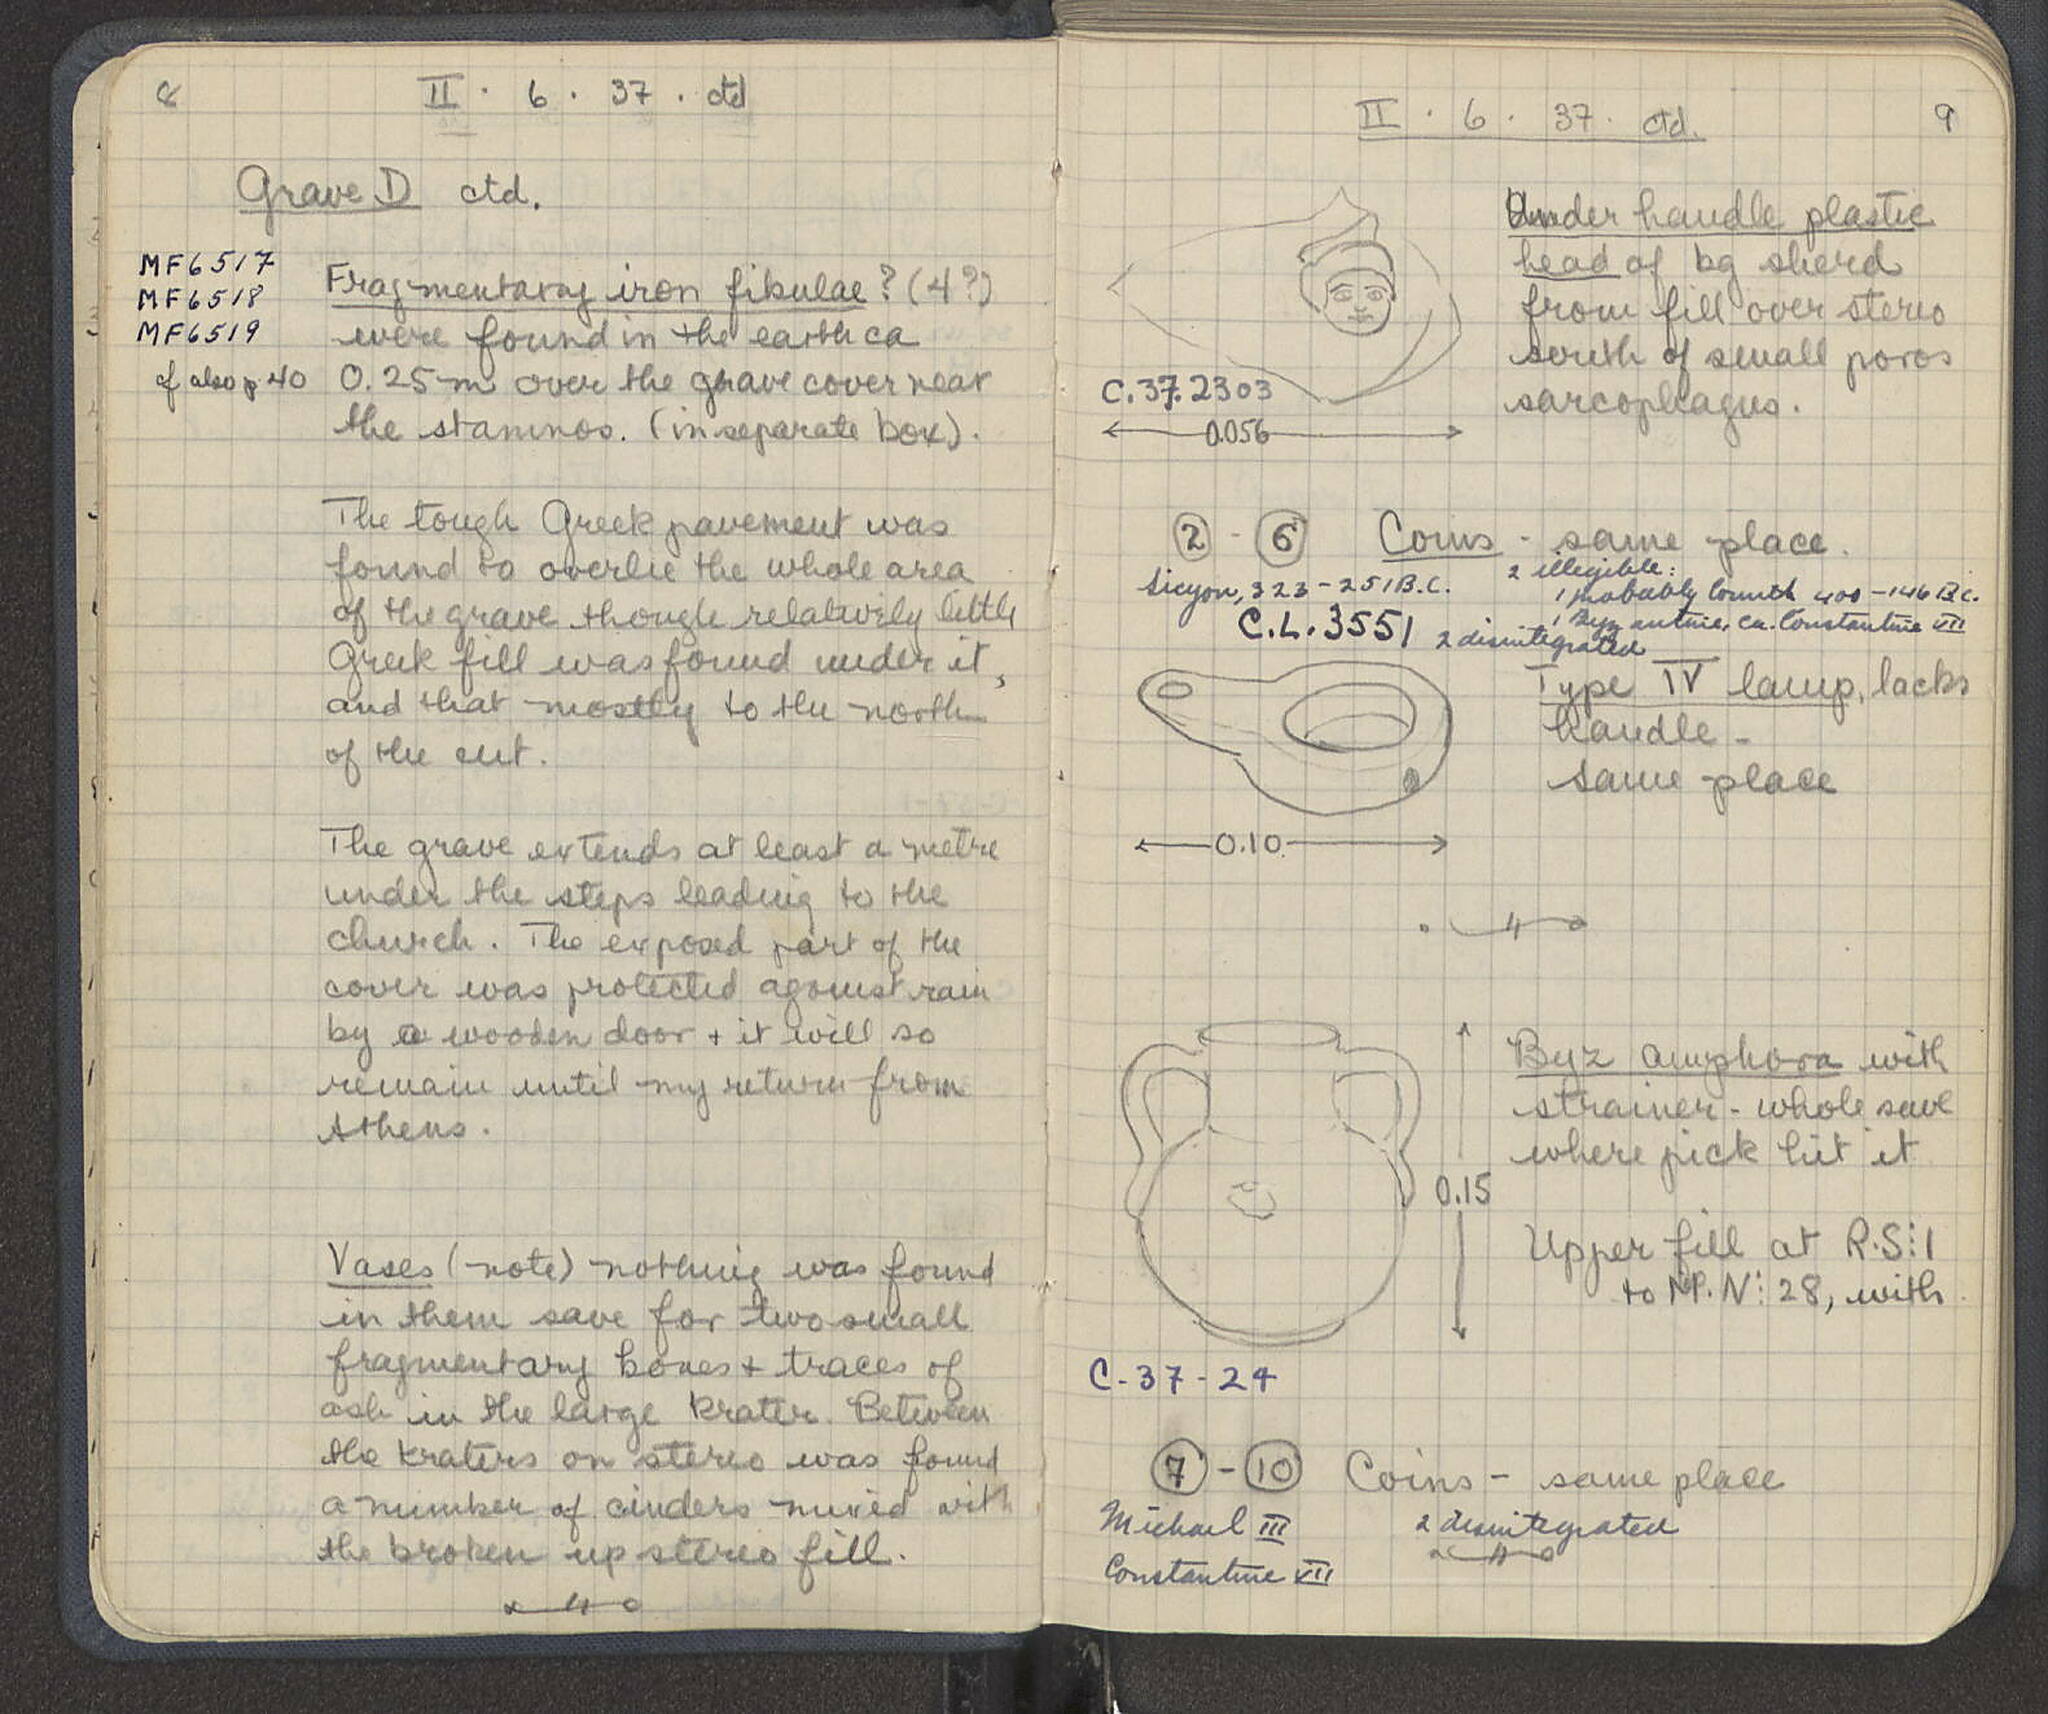 8
II . 6 . 37 . ctd
Grave D ctd.
MF6517
MF6518
MF6519
cf also p 40
Fragmentary iron fibulae? (4?)
were found in the earth ca
0.25 m over the grave cover near
the stamnos. (in separate box).
The tough Greek pavement was
found to overlie the whole area
of the grave though relatively little
Greek fill was found under it,
and that mostly to the north
of the cut.
The grave extends at least a metre
under the steps leading to the
church. The exposed part of the
cover was protected against rain
by a wooden door + it will so
remain until my return from
Athens.
Vases (note) nothing was found
in them save for two small
fragmentary bones + traces of
ash in the large krater. Between
the kraters on stereo was found
a number of cinders mixed with
the broken up stereo fill.
II . 6 . 37. ctd.
9
Under handle plastic
head of bg sherd
from fill over stereo
south of small poros
sarcophagus.
C.37.2303
0.056
2 - 6 Coins - same place.
Sicyon, 323-251 B.C.
2 illegible:
1 probably Corinth 400-146 B.C.
1 Byzantine, ca. Constantine VII
2 disintegrated
C.L.3551
Type IV lamp, lacks
handle -
same place
0.10
Byz amphora with
strainer - whole save
where pick hit it
0.15
Upper fill at R.S:1
to N.P.N: 28, with
C-37-24
7 - 10 Coins - same place
Michael III
2 disintegrated
Constantine VII